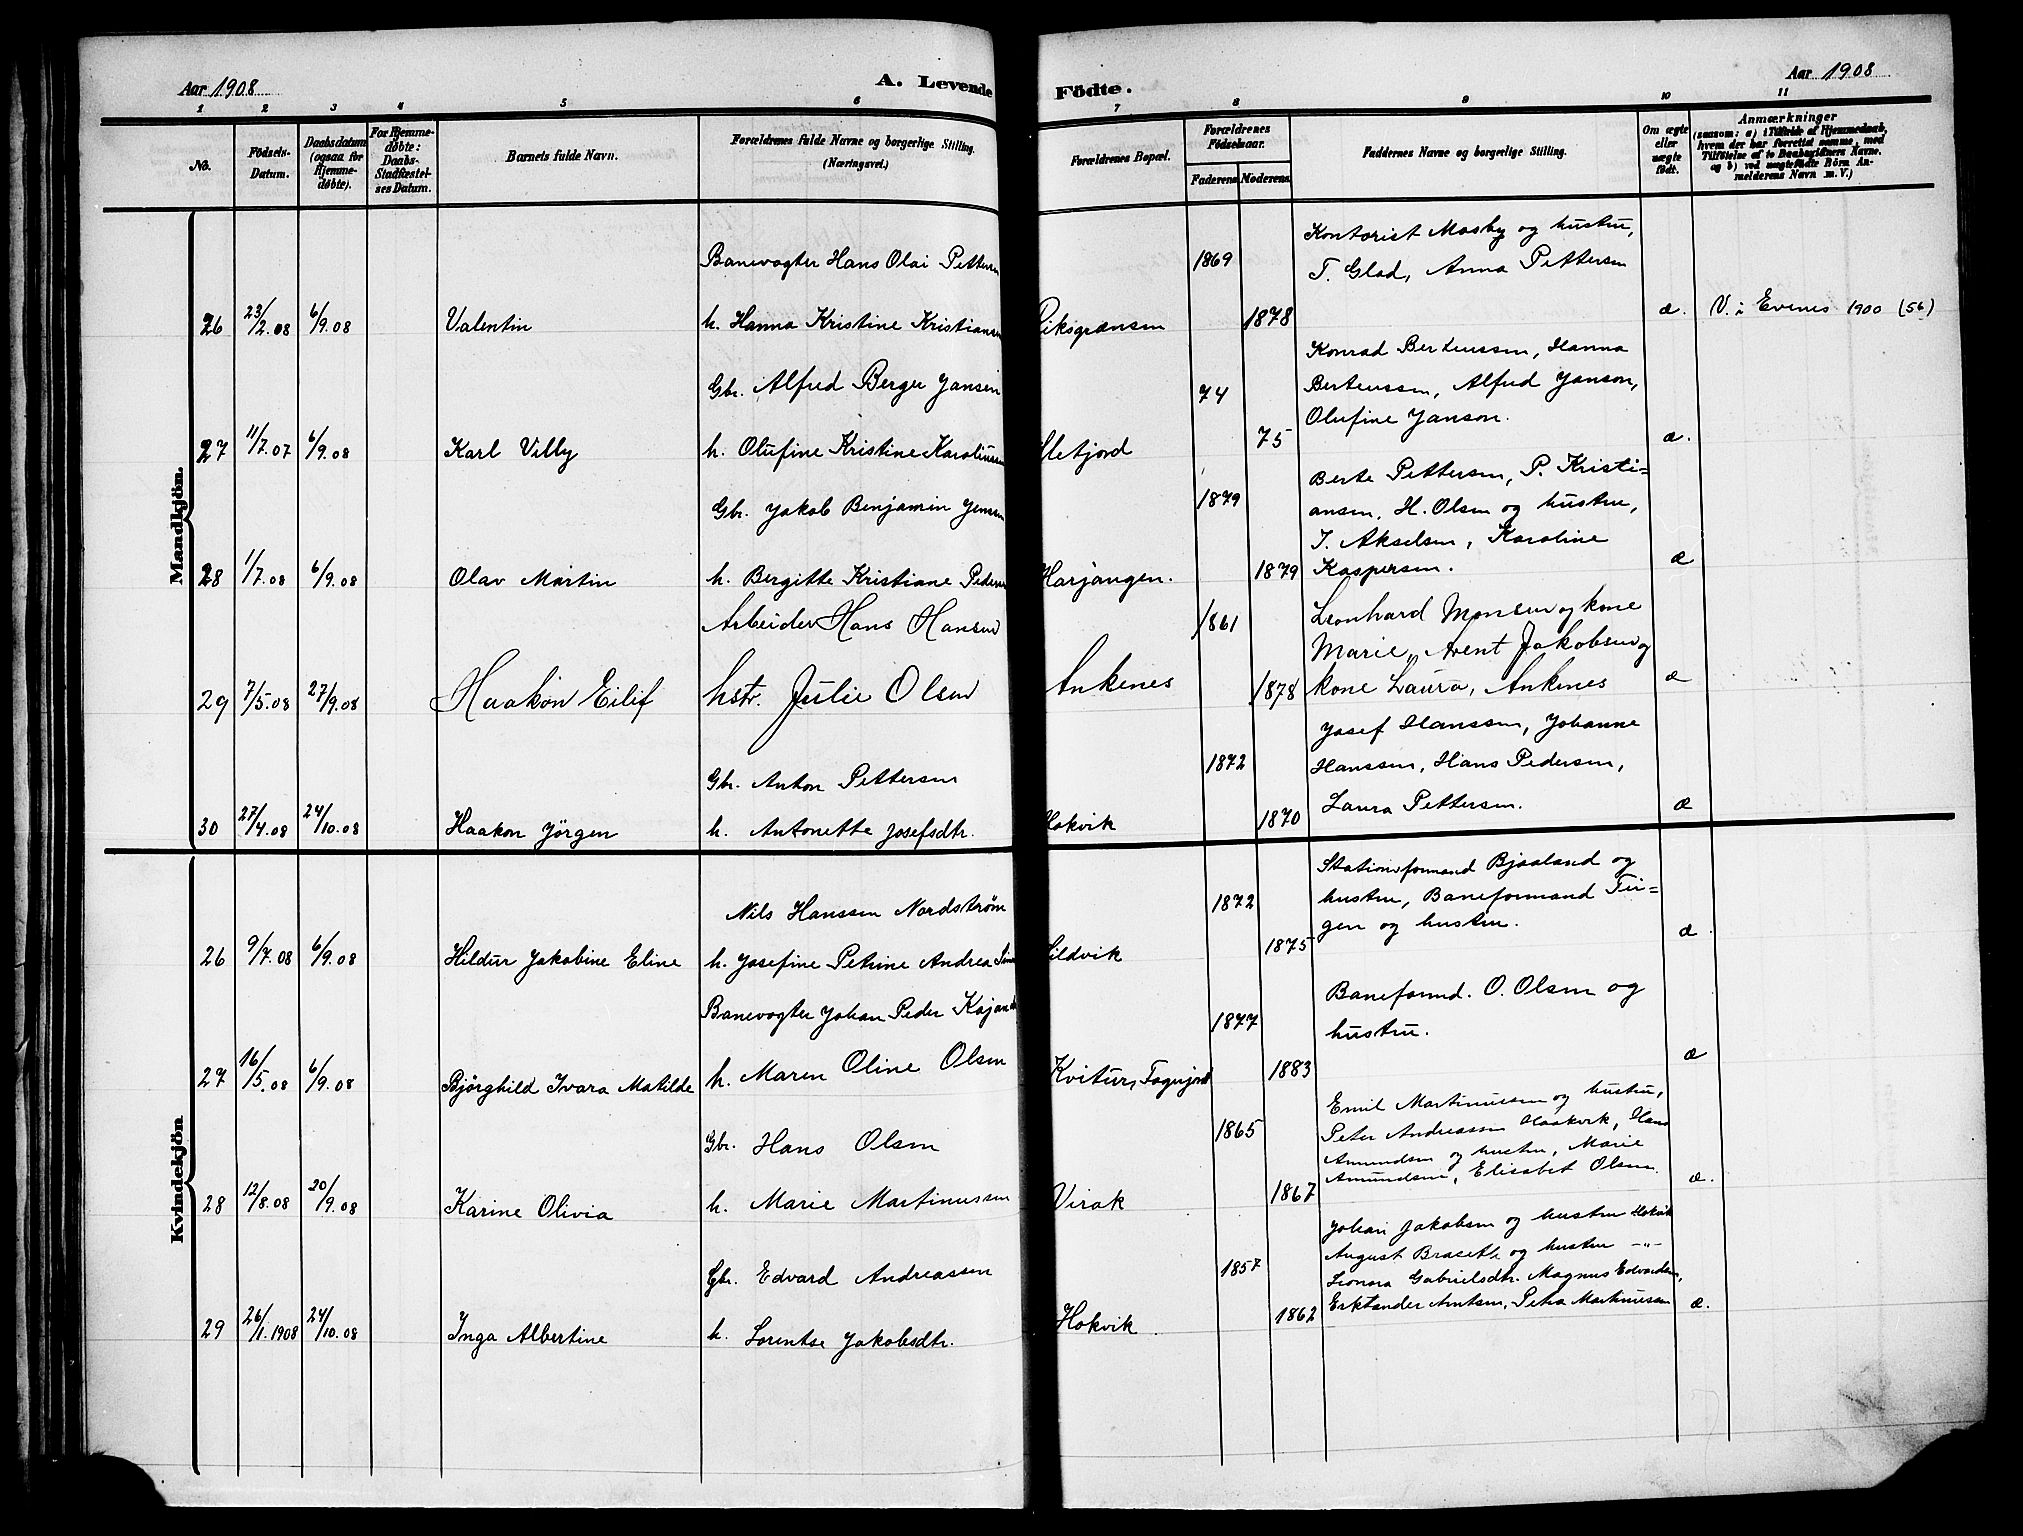 Aar 1908
A. Levende Fødte.
Aar 1908
1 2 3 4 5 6 7 8 9 10 11
No.
Fødsels-Datum.
Daabsdatum (ogsaa for Hjemme-døbte).
For Hjemme-døbte: Daabs-Stadfæstel-ses Datum.
Barnets fulde Navn.
Forældrenes fulde Navne og borgerlige Stilling. (Næringsvei.)
Forældrenes Bopæl.
Forældrenes Fødselsaar.
Faderens Moderens
Faddernes Navne og borgerlige Stilling.
Om ægte eller uægte født.
Anmærkninger
(saasom: a) i Tilfælde af Hjemmedaab, hvem der har forrettet samme, med Tilføielse af to Daabsvidners Navne. og b) ved uægtefødte Børn Anmelderens Navn m. V.)
Mandkjön.
Banevogter Hans Olai Petterse
1869
Kontorist Mosby og hustru,
T. Glad, Anna Pettersen
26 23/2.08 6/9.08 Valentin h. Hanna Kristine Kristianse Riksgrænsen 1878 æ. V. i Evenes 1900 (56)
Gbr. Alfred Berger Jansen
74
Konrad Berteussen, Hanna
Berteussen, Alfred Janson,
Olufine Janson.
27 11/7.07 6/9.08 Karl Villy h. Olufine Kristine Karoliusse lletjord 75 æ.
Gbr. Jakob Benjamin Jensen
1879
Berte Pettersen, P. Kristi=
ansen, H. Olsen og hustru,
I. Akselsen, Karoline
Kaspersen.
28 1/7.08 6/9.08 Olav Martin h. Bergitte Kristiane Peders Harjangen. 1879 æ
Arbeider Hans Hansen
1861
Leonhard Monsen og kone
Marie, Arent Jakobsen og
kone Laura, Ankenes
29 7/5.08 27/9.08 Haakon Eilif hstr. Julie Olsen Ankenes 1878 æ
Gbr. Anton Pettersen
1872
Josef Hanssen, Johanne
Hanssen, Hans Pedersen,
Laura Pettersen.
30 27/4.08 24/10.08 Haakon Jörgen h. Antonette Josefsdtr. Hokvik 1870 æ
Kvindekjön
Nils Hanssen Nordström
1872
Stationsformand Bjaaland og
hustru, Baneformand
gen og hustru.
26 9/7.08 6/9.08 Hildur Jakobine Eline h. Josefine Petrine Andrea Sildvik 1875 æ
Banevogter Johan Peder Kajan
1877
Baneformd. O. Olsen og
hustru.
27 16/5.08 6/9.08 Bjørghild Ivara Matilde h. Maren Oline Olsen 1883 æ
Gbr. Hans Olsen
1865
Emil Martinussen og hustru,
Peter Andreassen Haakvik, Hans
Amundsen og hustru, Marie
Amundsen, Elisabet Olsen
28 12/8.08 20/9.08 Karine Olivia h. Marie Martinussen Virak 1867 æ.
Gbr. Edvard Andreassen
1857
Johan Jakobsen og hustru Hokvik
August Braseth og hustru -"-
Leonora Gabrielsdtr. Magnus Edvardsen,
Arntsen, Petra Martinussen
29 26/1.1908 24/10.08 Inga Albertine h. Lorentse Jakobsdtr. Hokvik 1862 æ.